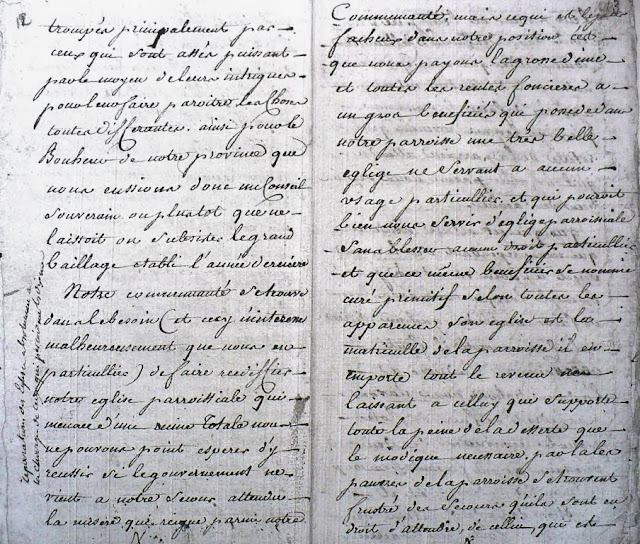 12
trompés principalement par
ceux qui sont assés puissant
par le moyen de leurs intrigues
pour leur faire paroitre les Choses
toutes differantes. ainsi pour le
Bonheur de notre province que
nous eussions donc un Conseil
souverain ou plutatot que ne
laissoit on subsister le grand
bailliage etabli l'année derniere
Notre communauté se trouve
dans le besoin (et cecy n'interesse
malheureusement que nous en
particullier) de faire reedifier
notre eglise parroissiale qui
menace d'une ruine Totale nous
ne pouvons point esperer d'y
reussir si le gouvernement ne
vient a notre secours attendu
la misere qui reigne parmi notre
reparation de l'eglise
a la charge de ceux qui
Communauté, mais ce qui est le plus
facheux dans notre position c'est
que nous payons la grosse dime
et toutes les rentes foncieres a
un gros beneficier qui possede dans
notre parroisse une trés belle
eglise ne Servant a aucun
usage particullier et qui pouroit
bien nous servir d'eglise parroissiale
Sans blesser aucun droit particullier
et que ce même beneficier se nomme
curé primitif selon toutes les
apparences son eglise est la
matricule de la parroisse il en
importe tout le revenu en
laissant a celluy qui supporte
toute la peine de la desserte que
le modique necessaire, par la les
pauvres de la parroisse se trouvent
frustré des secours qu'ils sont en
droit d'attendre, de celluy qui est